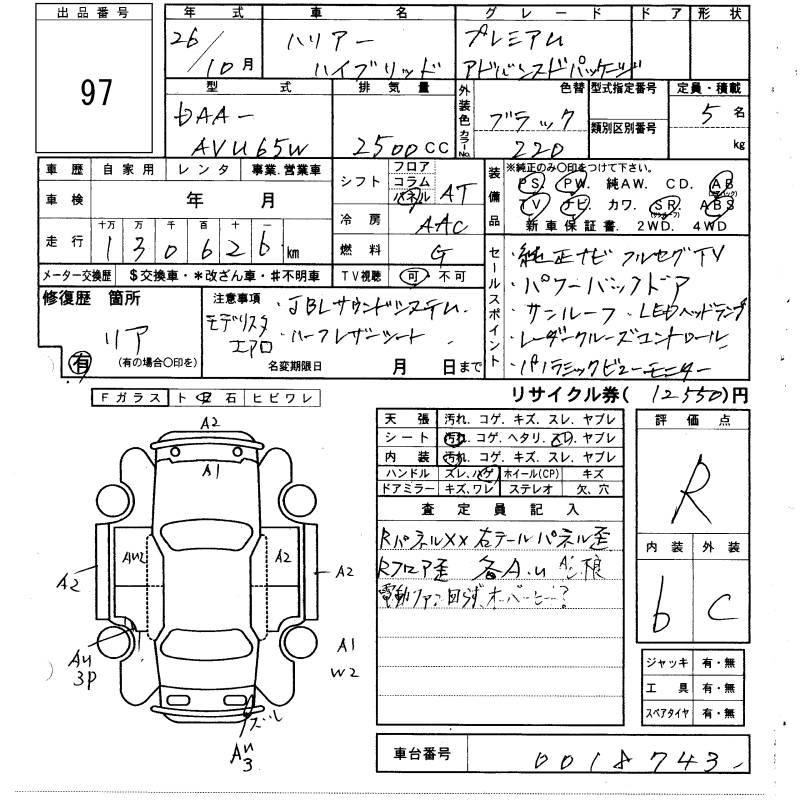 出品番号
97
年式 車名 グレード ドア 形状
26/10月 ハリアー ハイブリッド プレミアム アドバンスドパッケージ
型式 排気量 外装色 カラーNo. 色替 型式指定番号 定員・積載
DAA-
AVU65W 2500CC ブラック 220 類別区別番号 5名 kg
車歴 自家用 レンタ 事業.営業車
車検 年 月
走行 十万 万 千 百 十 一
1 3 0 6 2 6 km
メーター交換歴 $交換車・*改ざん車・#不明車
シフト フロア コラム パネル AT
冷房 AAC
燃料 G
TV視聴 可・不可
装備品 ※純正のみ○印をつけて下さい。
PS. PW. 純AW. CD. AB(エアバック)
TV ナビ カワ. SR(サンルーフ) ABS
新車保証書. 2WD. 4WD
セールスポイント
・純正ナビ フルセグTV
・パワーバックドア
・サンルーフ・LEDヘッドランプ
・レーダークルーズコントロール
・パノラミックビューモニター
修復歴 箇所
リア
有 (有の場合○印を)
注意事項 ・JBLサウンドシステム
モデリスタ ・ハーフレザーシート
エアロ
名変期限日 月 日まで
リサイクル券( 12550)円
Fガラス ト 飛 石 ヒビワレ
天張 汚れ. コゲ. キズ. スレ. ヤブレ
シート 汚れ. コゲ. ヘタリ. スレ. ヤブレ
内装 汚れ. コゲ. キズ. スレ. ヤブレ
ハンドル スレ. ハゲ ホイール(CP) キズ
ドアミラー キズ. ワレ ステレオ 欠. 穴
査定員記入
RパネルXX 右テールパネル歪
Rフロア歪 各A.U
電動ファン回らず、オーバーヒート?
評価点
R
内装 外装
b C
ジャッキ 有・無
工具 有・無
スペアタイヤ 有・無
車台番号 0018743
A2
A1
AU2
A2
A2
A2
AU
3P
A1
W2
ズレ
AU
3